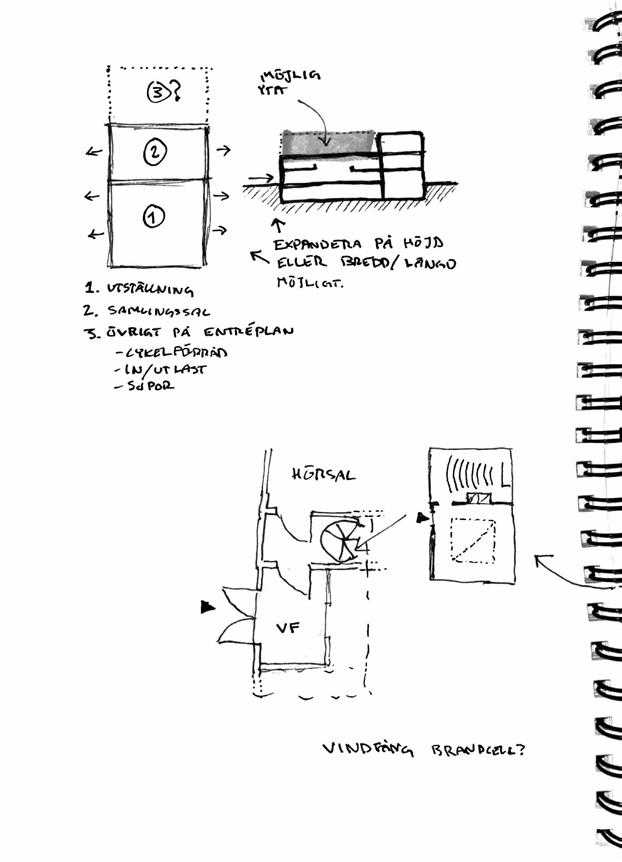 3?
2
1
MÖJLIG
YTA
EXPANDERA PÅ HÖJD
ELLER BREDD/LÄNGD
MÖJLIGT.
1. UTSTÄLLNING
2. SAMLINGSSAL
3. ÖVRIGT PÅ ENTRÉPLAN
- CYKELFÖRRÅD
- IN/UTLAST
- SOPOR
HÖRSAL
VF
VINDFÅNG BRANDCELL?